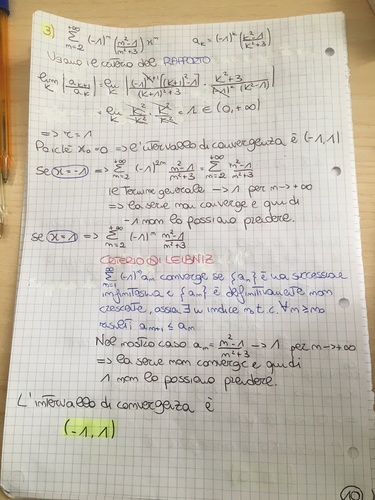 3) ∑_{n=2}^{+∞} (-1)^n (n²-1 / n²+3) x^n    a_k = (-1)^k (k²-1 / k²+3)
Usiamo il criterio del RAPPORTO
lim_k |a_{k+1} / a_k| = lim_k |(-1)^{k+1} [(k+1)²-1] / (k+1)²+3 · k²+3 / (-1)^k (k²-1)|
= lim_k k²/k² · k²/k² = 1 ∈ (0,+∞)
=> r = 1
Poiché x₀=0 => l'intervallo di convergenza è (-1,1)
Se x=-1 => ∑_{n=2}^{+∞} (-1)^{2n} n²-1 / n²+3 = ∑_{n=2}^{+∞} n²-1 / n²+3
il termine generale → 1 per n→+∞
=> la serie non converge e quindi
-1 non lo possiamo prendere.
se x=1 => ∑_{n=2}^{+∞} (-1)^n n²-1 / n²+3
CRITERIO DI LEIBNIZ
∑_{n=1}^{∞} (-1)^n a_n converge se {a_n} è una successione
infinitesima e {a_n} è definitivamente non
crescente, ossia ∃ un indice n₀ t.c. ∀ n ≥ n₀
risulti a_{n+1} ≤ a_n
Nel nostro caso a_n = n²-1 / n²+3 → 1 per n→+∞
=> la serie non converge e quindi
1 non lo possiamo prendere.
L'intervallo di convergenza è
(-1,1)
10